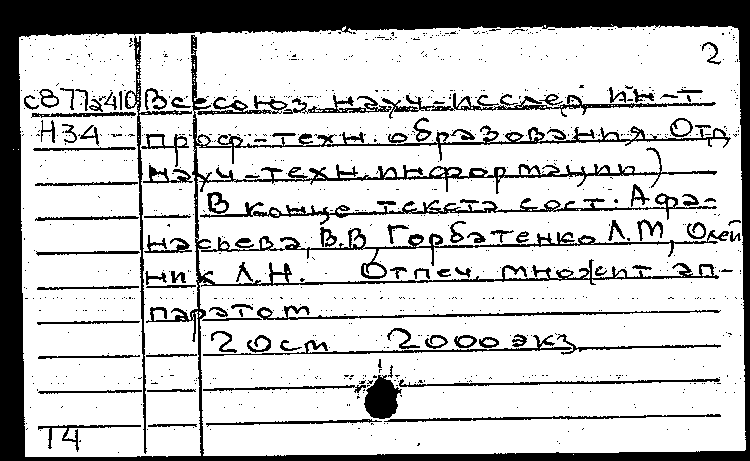 2
с877з410 Всесоюз. науч-исслед, ин-т
Н34 проф.-техн. образования. Отд
науч-техн. информации)
В конце текста сост. Афа-
насьева, В.В, Горбатенко Л.М, Олей
ник Л.Н. Отпеч. множит ап-
паратом
20 ст 2000 экз.
Т4